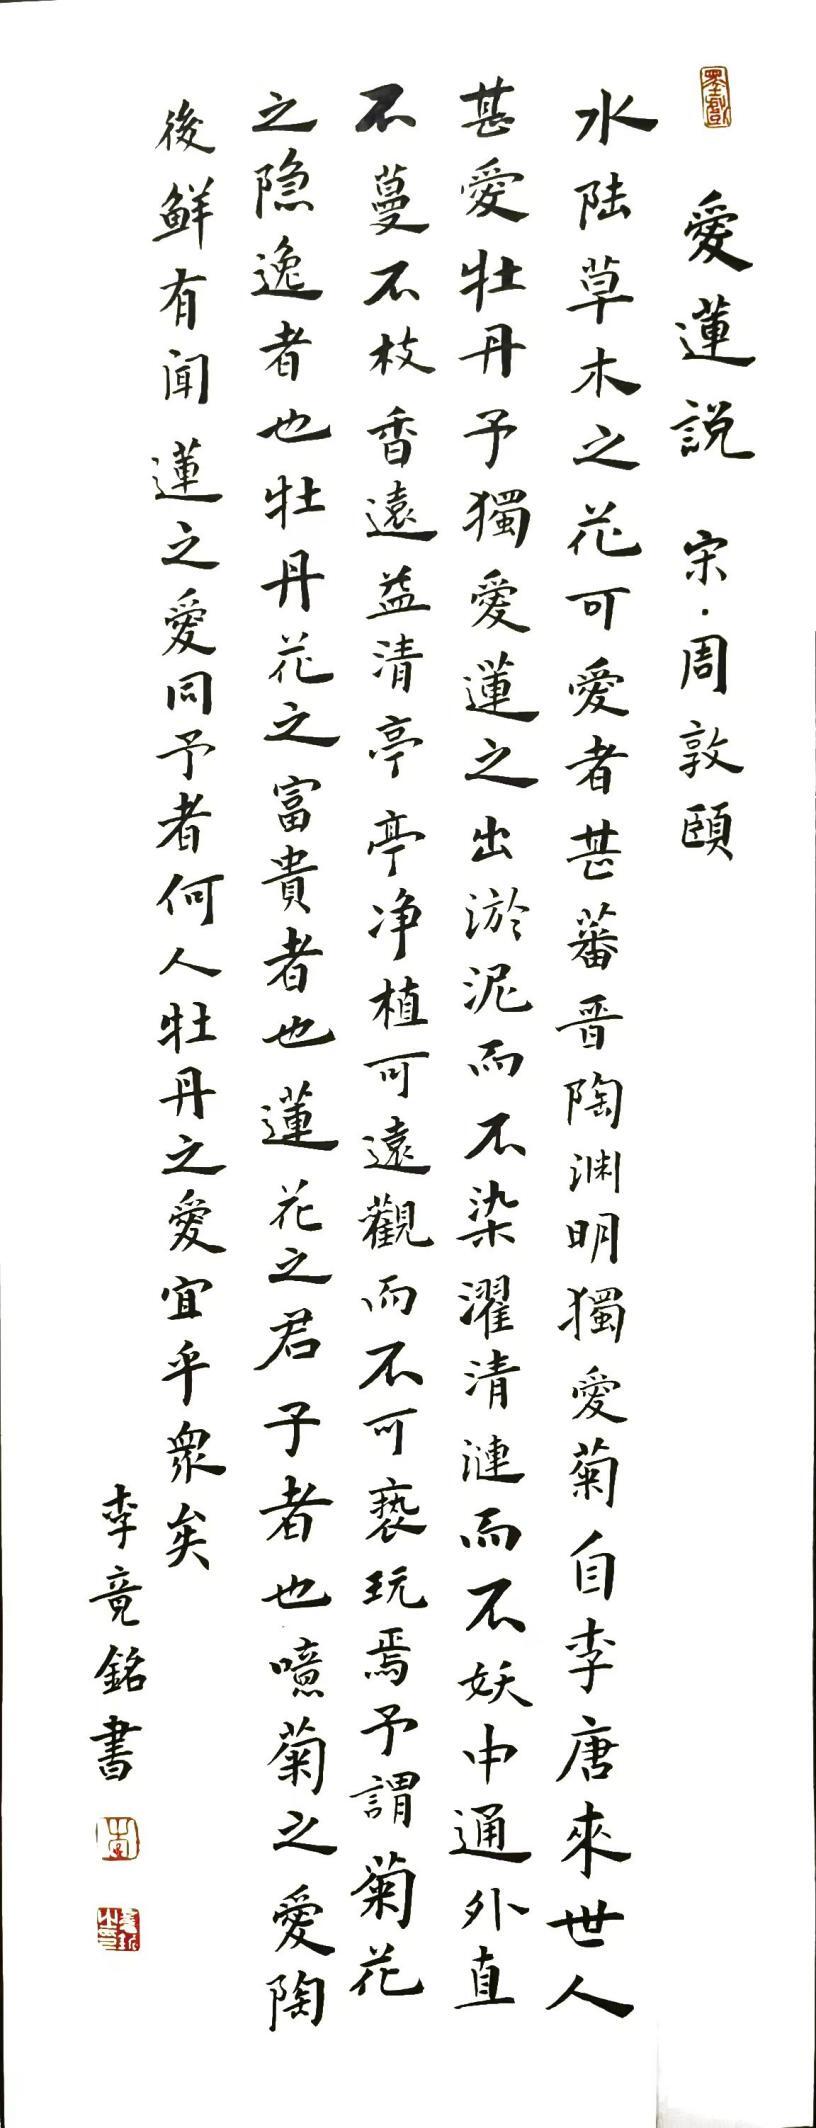 愛蓮説 宋·周敦頤
水陆草木之花可愛者甚蕃晋陶渊明獨愛菊自李唐來世人
甚愛牡丹予獨愛蓮之出淤泥而不染濯清漣而不妖中通外直
不蔓不枝香遠益清亭亭净植可遠觀而不可亵玩焉予謂菊花
之隐逸者也牡丹花之富貴者也蓮花之君子者也噫菊之愛陶
後鲜有闻蓮之愛同予者何人牡丹之愛宜乎衆矣
李竟銘書
李